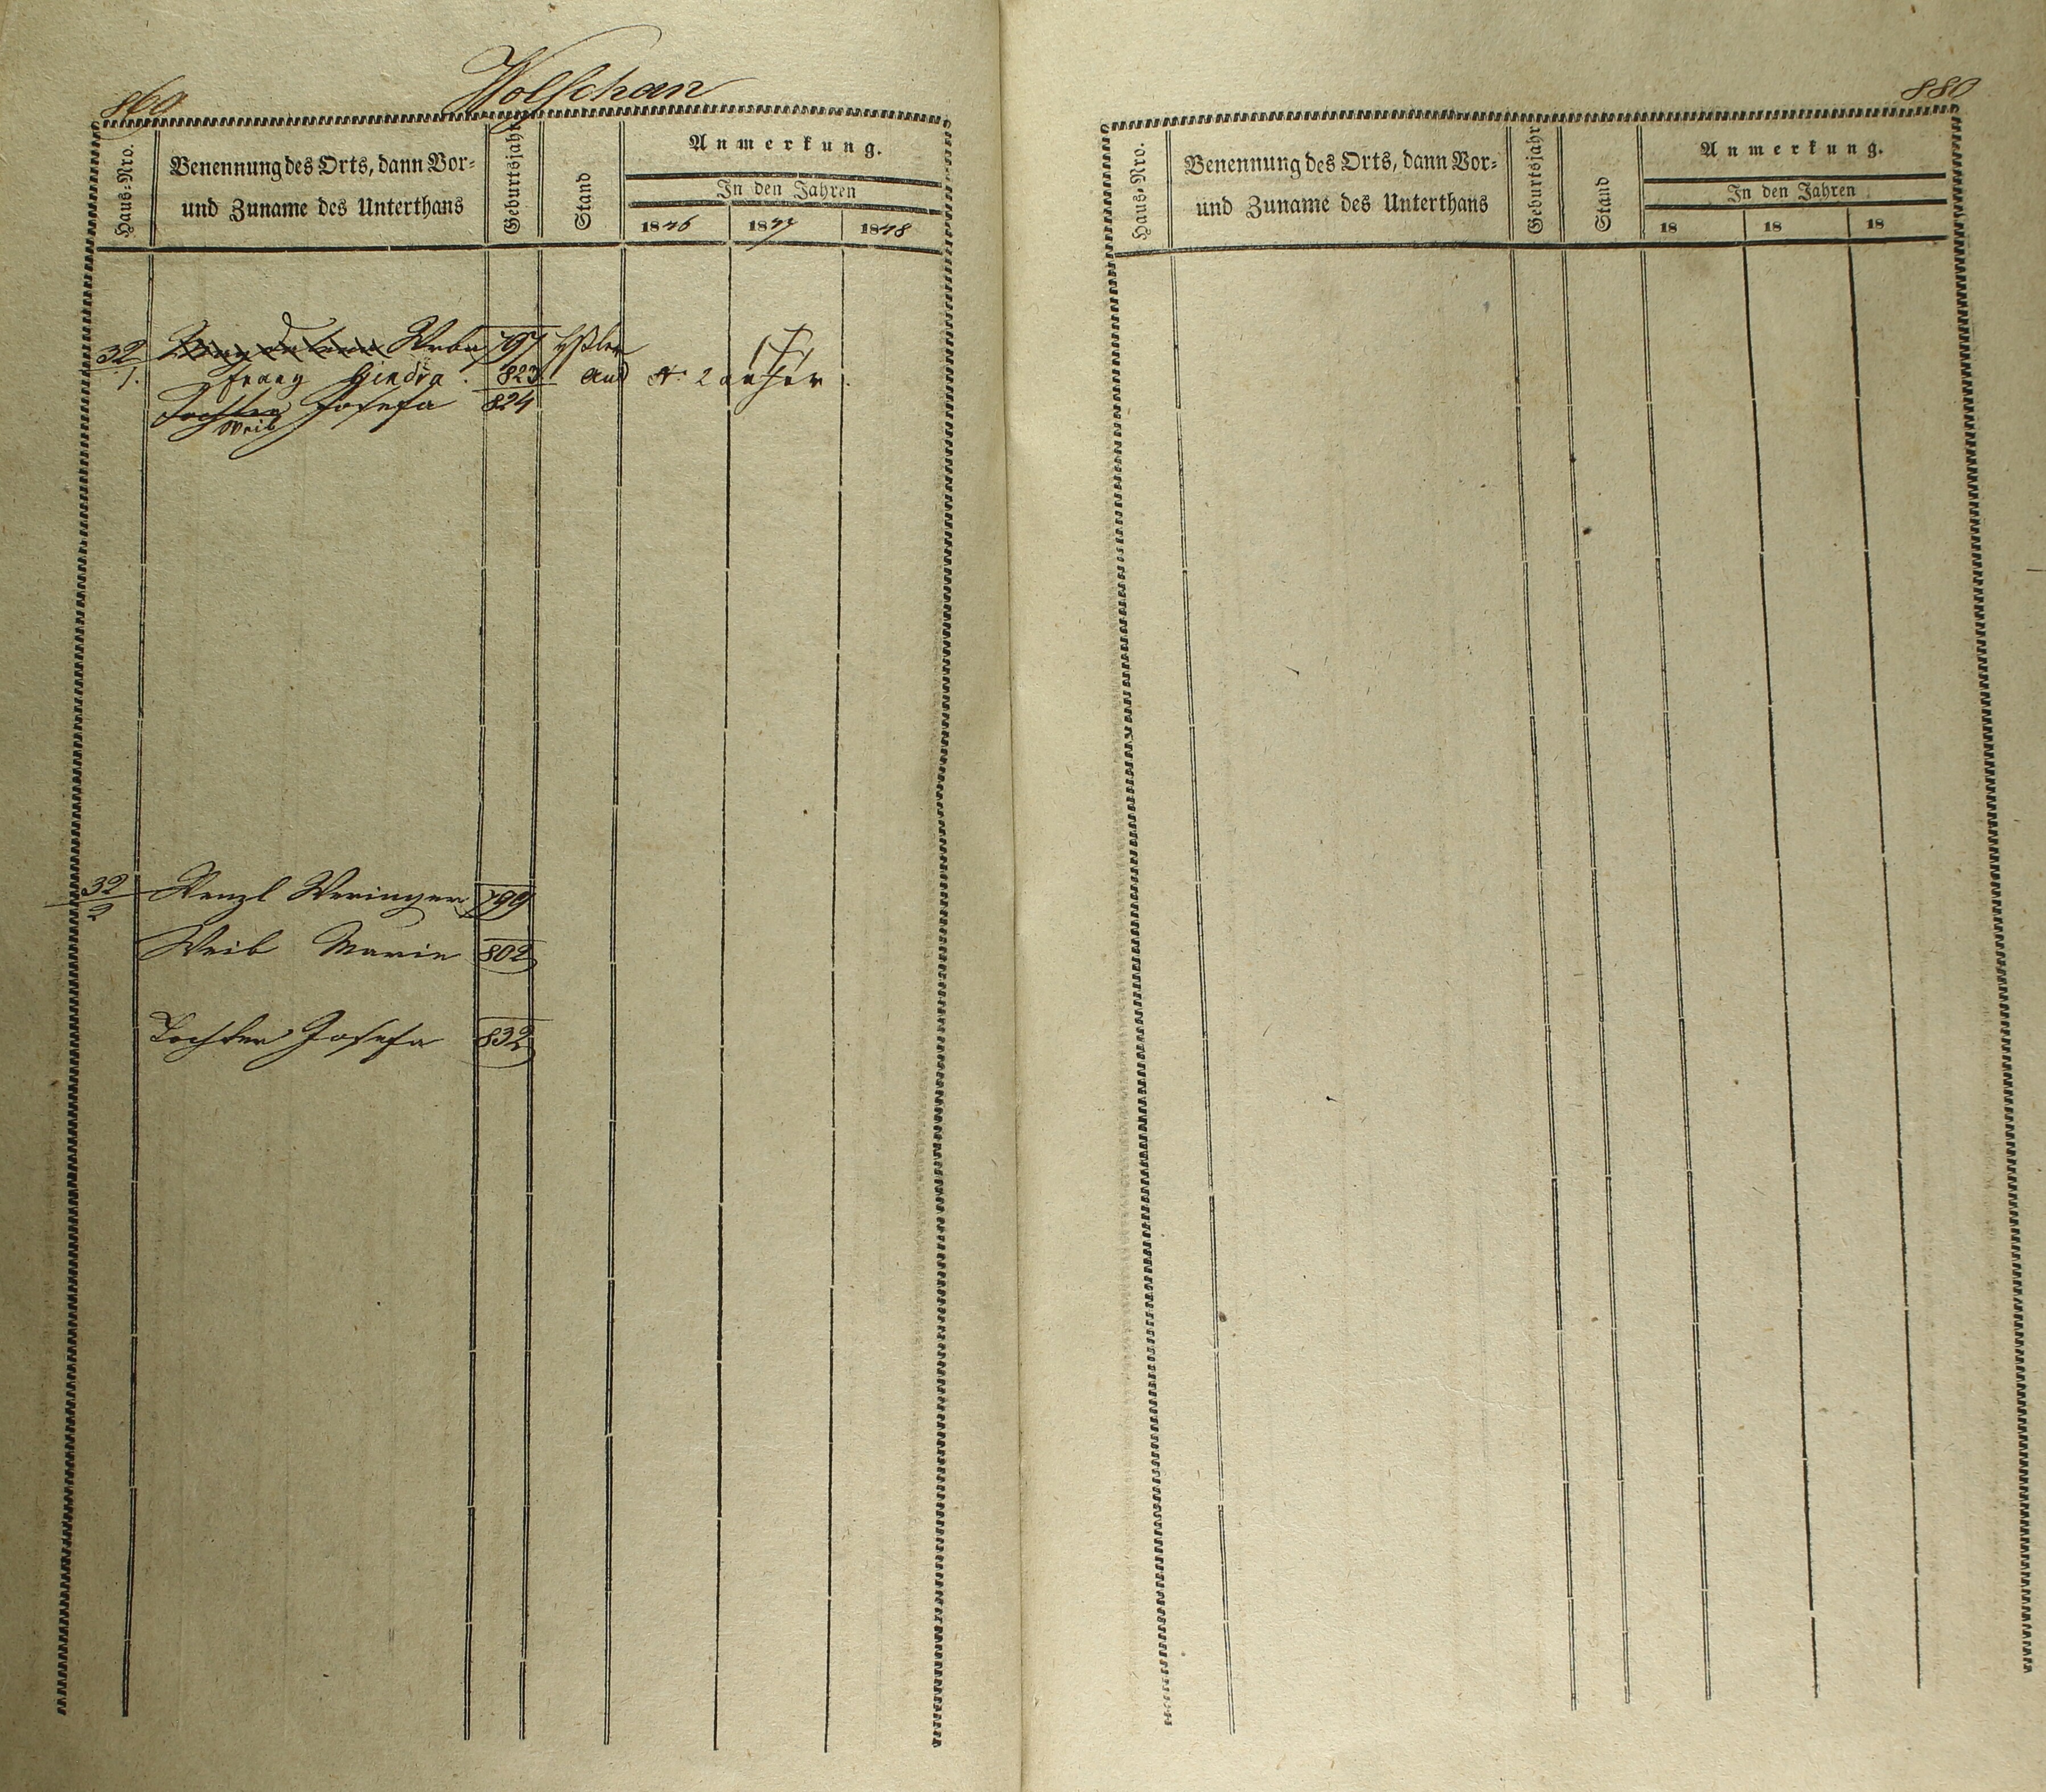 869
Wolschan
Haus-Nro.
Benennung des Orts, dann Vor-
und Zuname des Unterthans
Geburtsjahr
Stand
Anmerkung.
In den Jahren
1846 1847 1848
32/1.
797
Franz Gindra. 823 aus N: 2 anher.
Tochter Josefa 824
Weib
32/2 Wenzl Weringer 799
Weib Marie 802
Tochter Josefa 832
880
Haus-Nro.
Benennung des Orts, dann Vor-
und Zuname des Unterthans
Geburtsjahr
Stand
Anmerkung.
In den Jahren
18 18 18